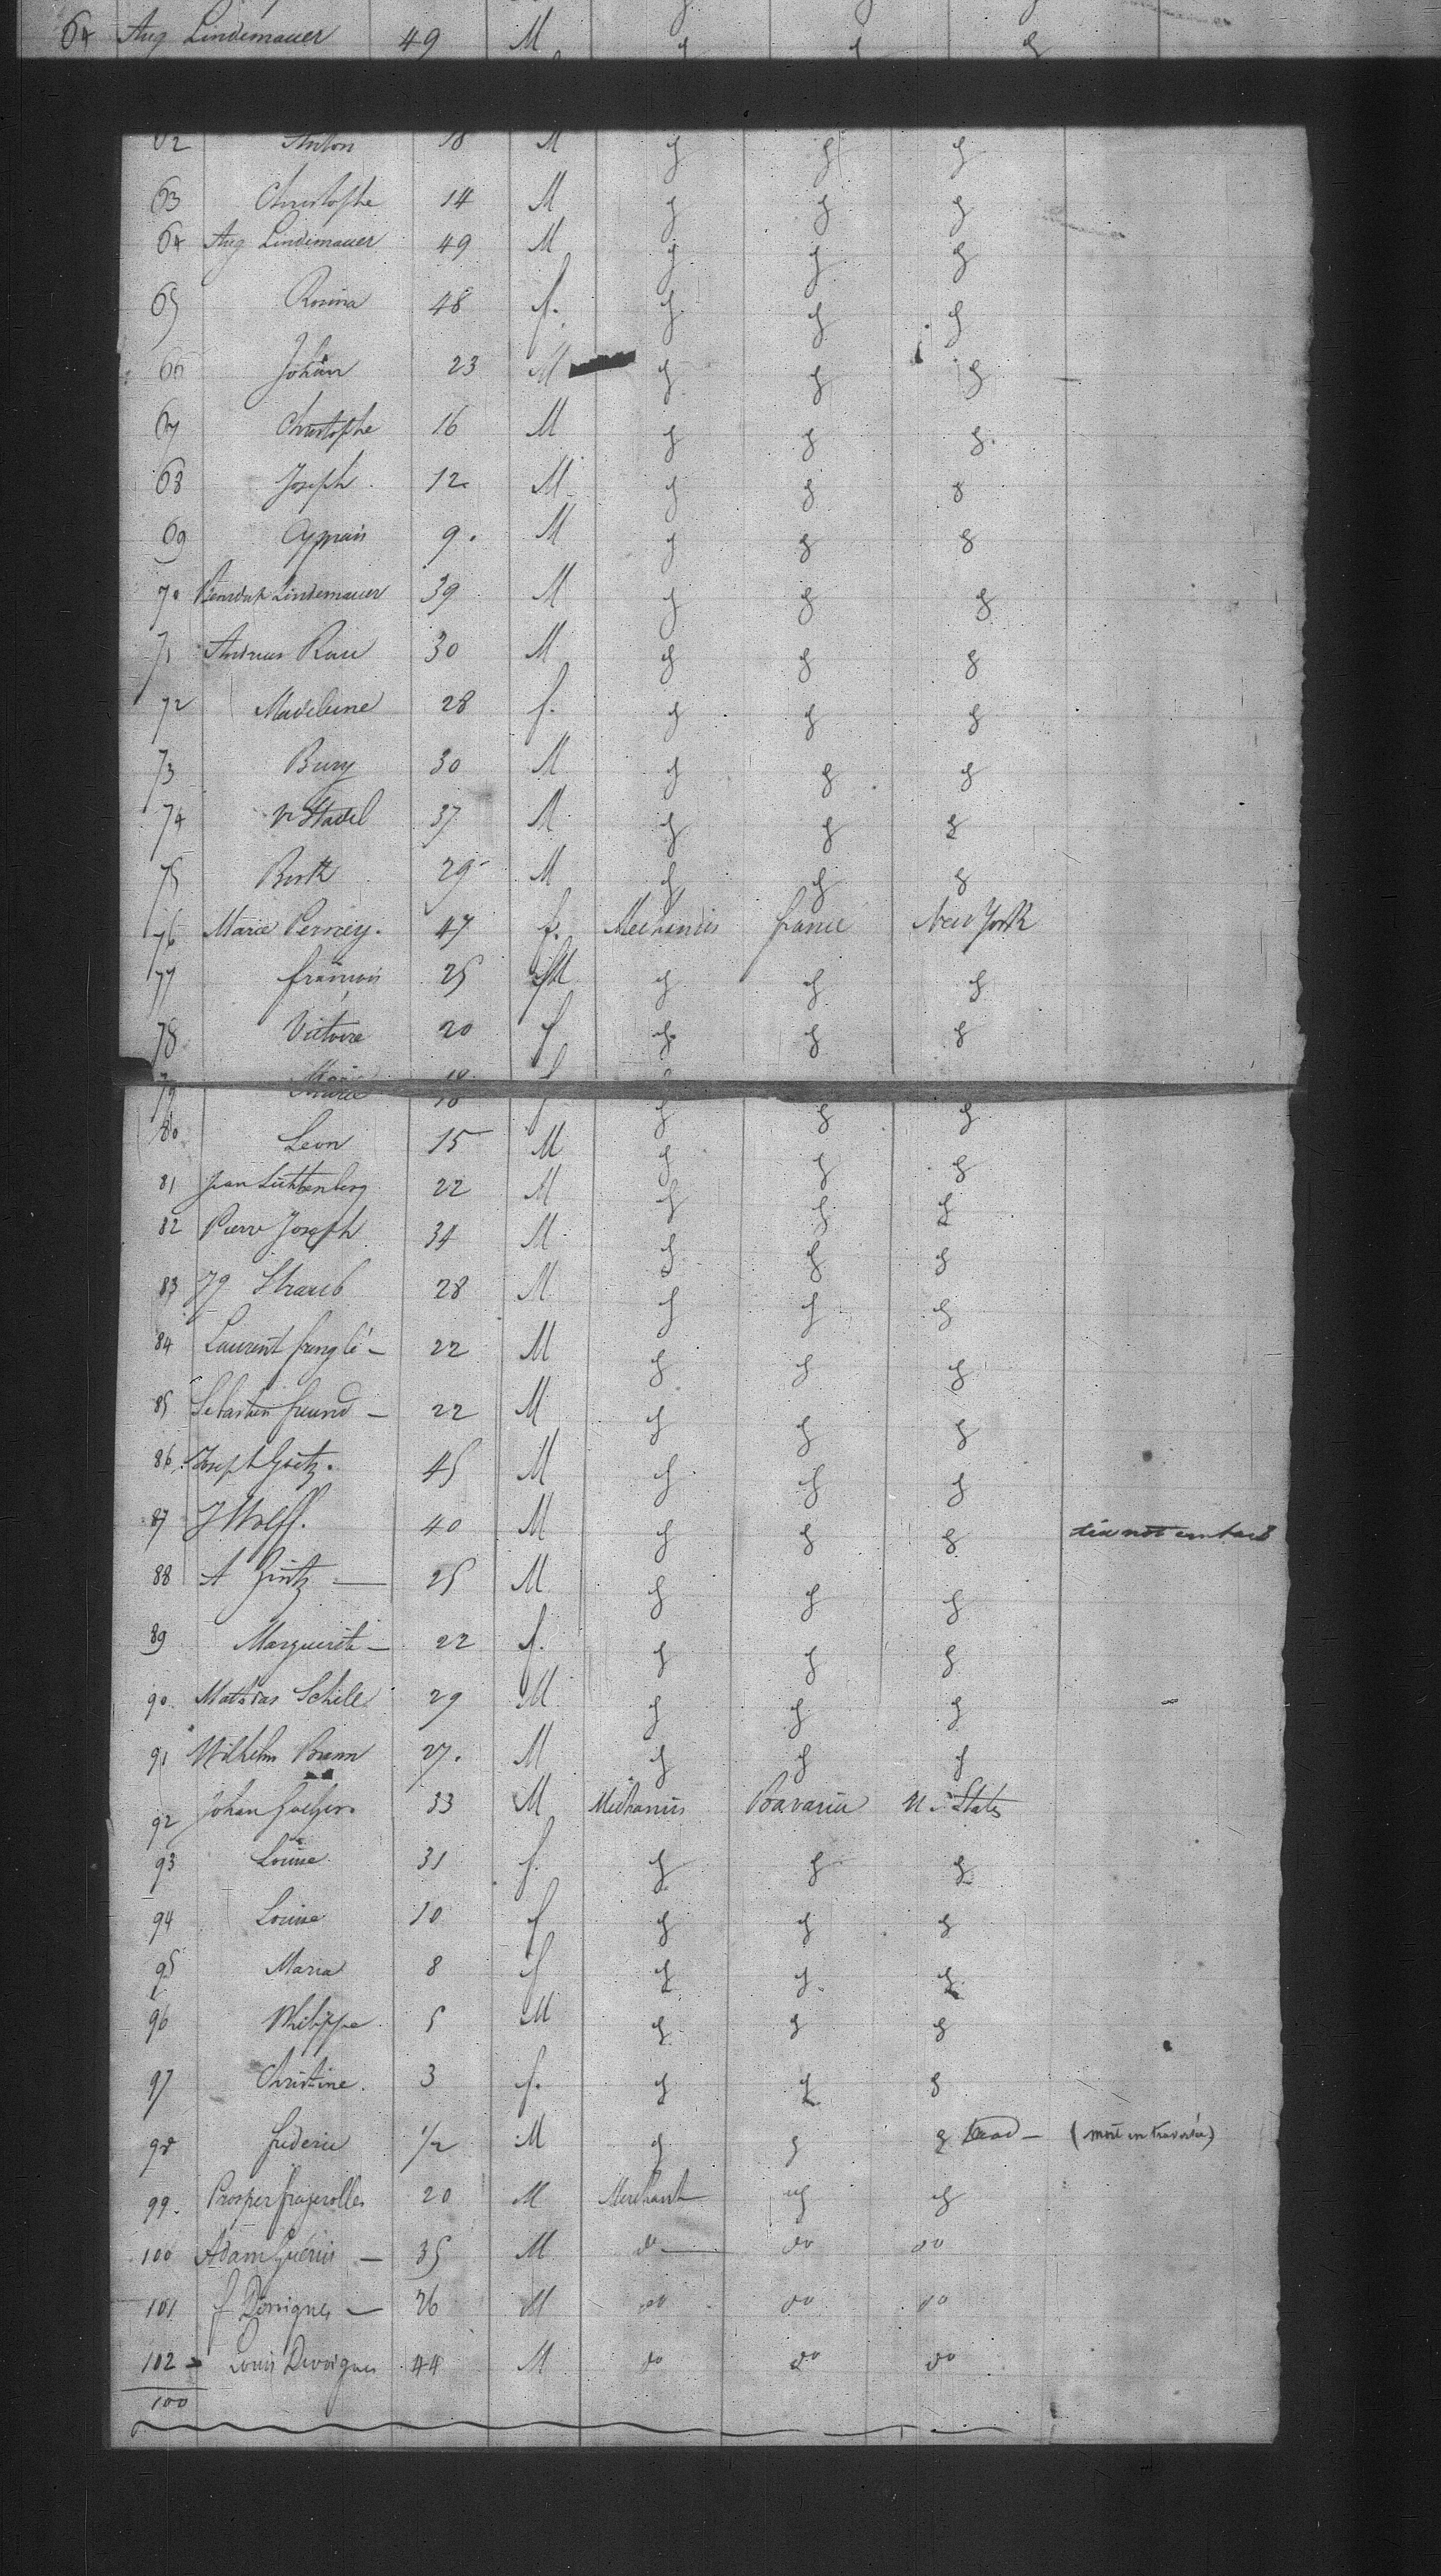 64 Aug Lindemauer 49 M " " "
62 Anton 18 M " " "
63 Christophe 14 M " " "
64 Aug Lindemauer 49 M " " "
65 Rosina 48 f. " " "
66 Johan 23 M " " "
67 Christophe 16 M " " "
68 Joseph 12 M " " "
69 9. M " " "
70 Lindemauer 39 M " " "
71 Andreas 30 M " " "
72 Madeleine 28 f. " " "
73 Bury 30 M " " "
74 37 M " " "
75 29 M " " "
76 Marie Perney. 47 f. france New York
77 francois 25 M " " "
78 Victoire 20 f " " "
79 Marie 18 f " " "
80 Leon 15 M " " "
81 Jean Lichtenberg 22 M " " "
82 Pierre Joseph 34 M " " "
83 Straub 28 M " " "
84 Laurent 22 M " " "
85 Sebastien freund 22 M " " "
86 Joseph Goetz. 45 M " " "
87 J Wolff. 40 M " " " did not embark
88 A 25 M " " "
89 Marguerite 22 f. " " "
90. Mathias Schile 29 M " " "
91 Wilhelm 27. M " " "
92 Johan 33 M Mechanics Bavaria U. States
93 Louise 31 f. " " "
94 Louise 10 f " " "
95 Maria 8 f " " "
96 Philippe 5 M " " "
97 Christine. 3 f. " " "
98 frederic 1/2 M " " " Dead (mort en traversée)
99. Prosper frazerolles 20 M Merchant " "
100 Adam Guerin 35 M do do do
101 f 26 M do do do
102 Louis 44 M do do do
100